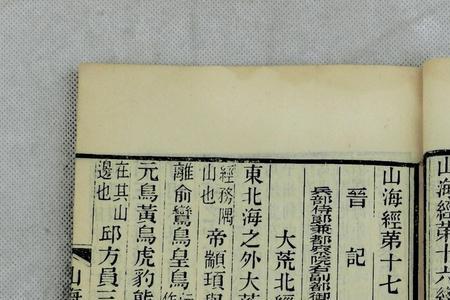 山海經第十六
山海經第十七
晉 記
兵部侍郎兼都察院右副都御
大荒北經
東北海之外大荒
經務隅
山也 帝顓頊與
離俞鸞鳥皇鳥
元鳥黃鳥虎豹熊
在其山
邊也 邱方員三
山海